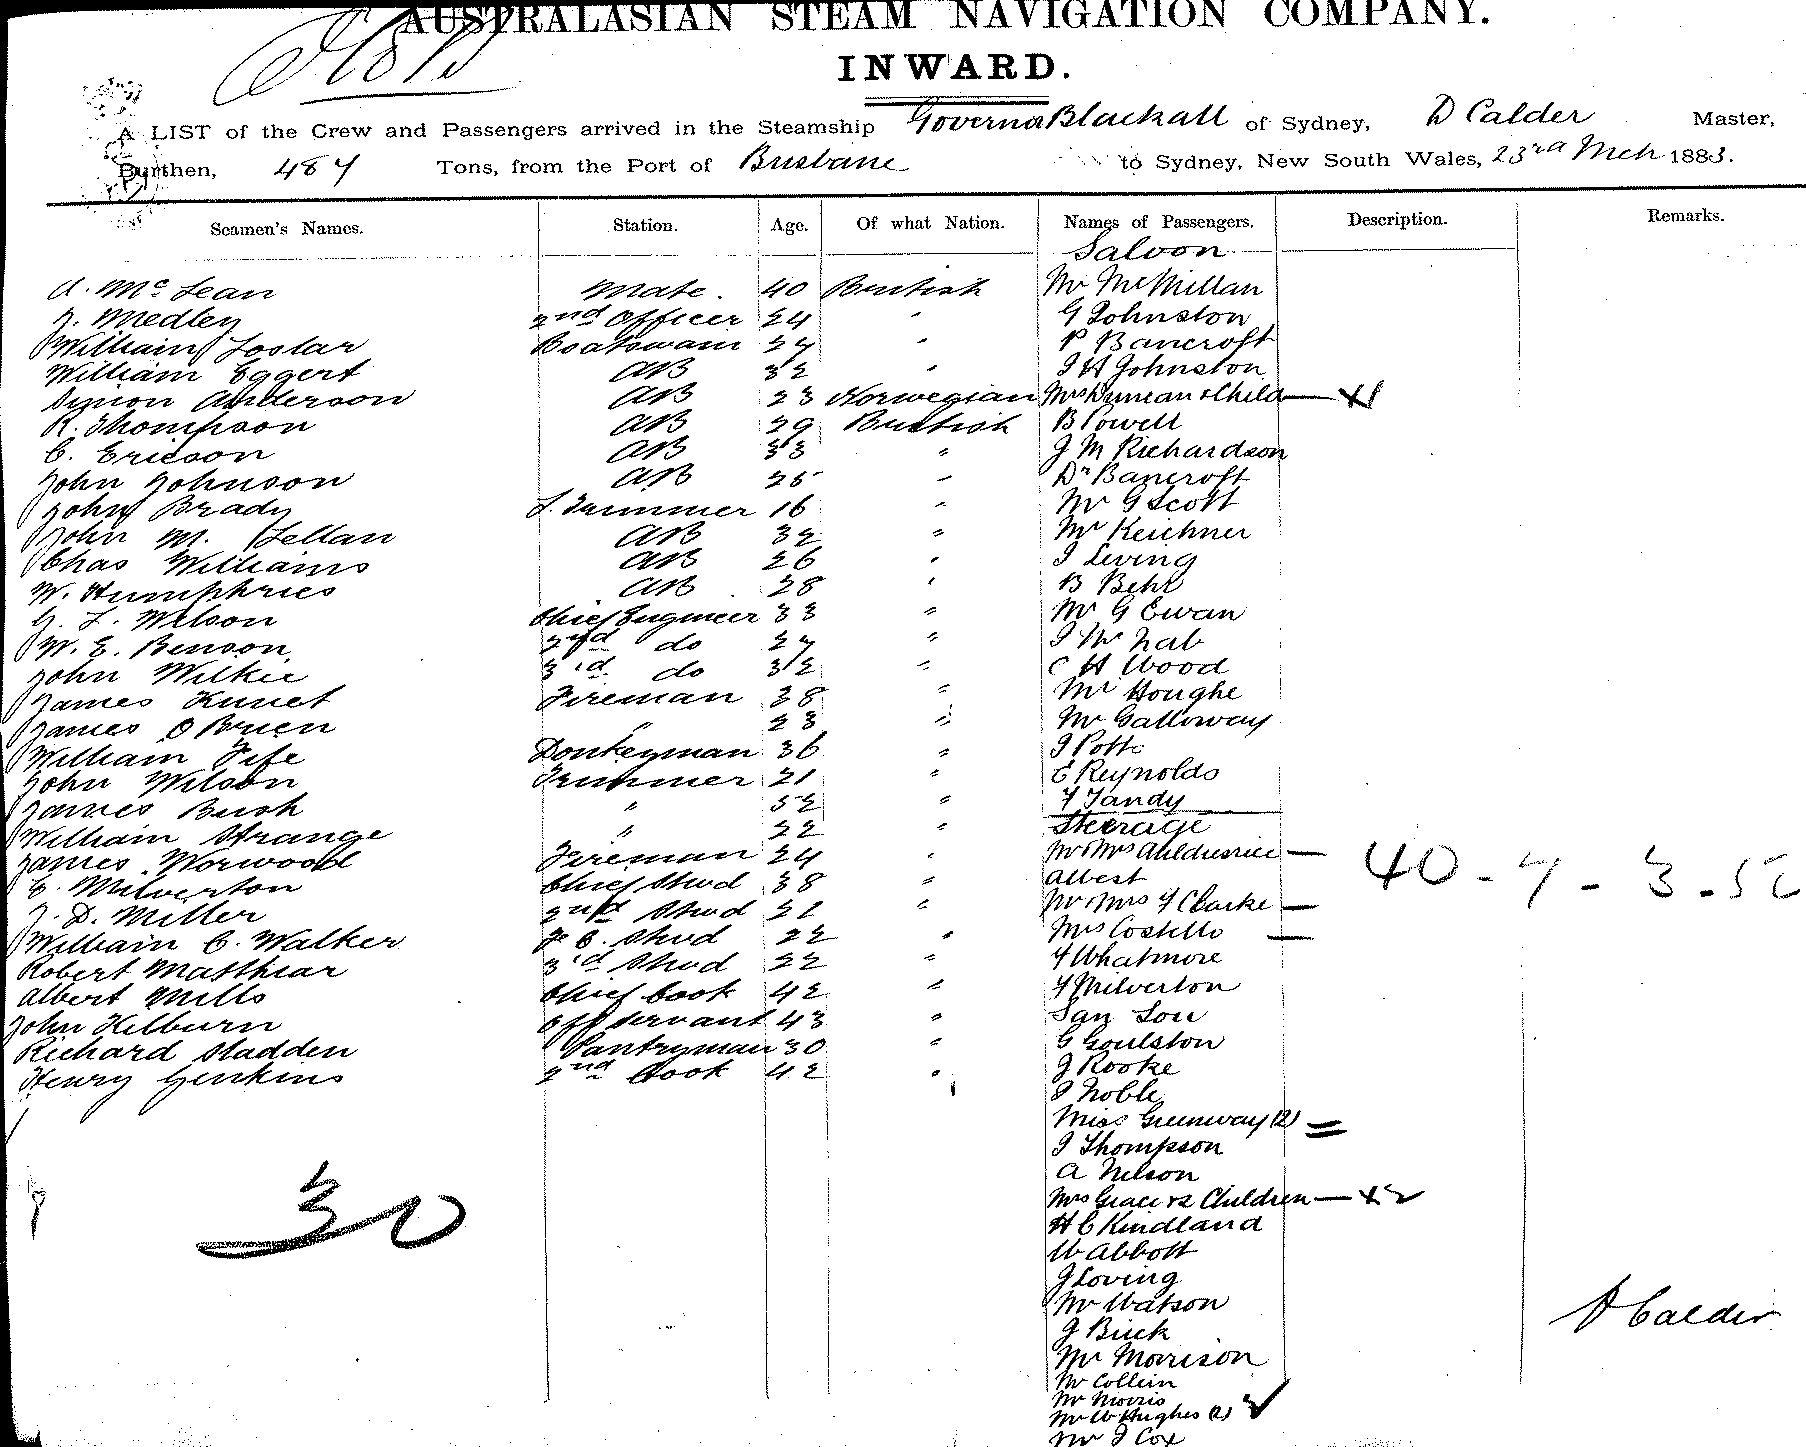 AUSTRALASIAN STEAM NAVIGATION COMPANY.
INWARD.
A LIST of the Crew and Passengers arrived in the Steamship Governor Blackall of Sydney, D Calder Master,
Burthen, 487 Tons, from the Port of Brisbane to Sydney, New South Wales, 23rd Mch 1883.
Seamen's Names. Station. Age. Of what Nation. Names of Passengers. Description. Remarks.
Saloon
A. McLean Mate. 40 British Mr McMillan
J. Medley 2nd Officer 24 " G Johnston
William Boatswain 24 " P Bancroft
William Eggert AB 32 " J H Johnston
Symon Anderson AB 23 Norwegian Mrs Duncan & Child — x1
R. Thompson AB 29 British B Powell
C. Ericson AB 33 " J M Richardson
John Johnson AB 25 " Dr Bancroft
John Brady L. Trimmer 16 " Mr G Scott
John M. Lellan AB 32 " Mr Keichner
Chas Williams AB 26 " J Leving
W. Humphries AB 28 " B Behr
G. L. Wilson Chief Engineer 33 " Mr G Ewan
W. E. Benson 2nd do 27 " J McNab
John Wilkie 3rd do 32 " C H Wood
James Fireman 38 " Mr Houghe
James O Brien " 23 " Mr Galloway
William Fife Donkeyman 36 " J Potts
John Wilson Trimmer 21 " E Reynolds
James Bush " 52 " F Tandy
Steerage
William Strange " 22 "
James Norwood Fireman 24 " Mr & Mrs —
C. Milverton Chief Stwd 38 " Albert 40 - 7 - 3 - 5
J. D. Miller 2nd Stwd 21 " Mr & Mrs F Clarke —
William C. Walker F. C. Stwd 22 " Mrs Costello —
Robert Matthiar 3rd Stwd 22 " F Whatmore
Albert Mills Chief Cook 42 " F Milverton
John Kilburn Off Servant 43 " San Lou
Richard Sladden Pantryman 30 " G Goulston
Henry Jenkins 2nd Cook 42 " J Rooke
J Noble
Miss Greenway (2) =
J Thompson
A Nelson
Mrs Grace & 2 Children — x2
H C Kindland
W Abbott
J Loving
Mr Watson
J Buck
Mr Morrison
Mr Collein
Mr Morris
Mr W Hughes (2)
Mr J Cox
30
D Calder